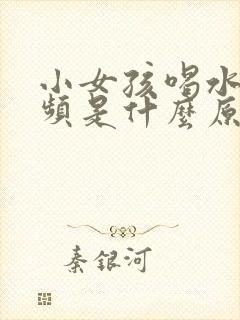 小女孩喝水
頻是什麼原
秦銀河